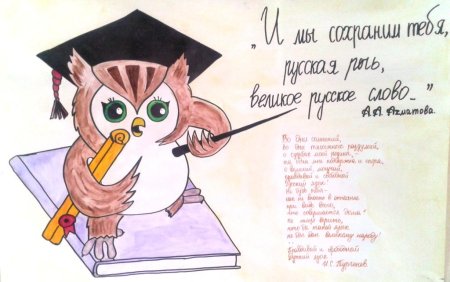 „И мы сохраним тебя,
русская речь,
великое русское слово..."
А.А. Ахматова.
Во дни сомнений,
во дни тягостных раздумий,
о судьбах моей родины,
ты один мне поддержка и опора,
о великий, могучий,
правдивый и свободный
Русский язык!
Не будь тебя -
как не впасть в отчаяние
при виде всего,
что совершается дома
Но нельзя верить,
чтобы такой язык
не был дан великому народу!
Правдивый и свободный
русский язык.
И.С. Тургенев.